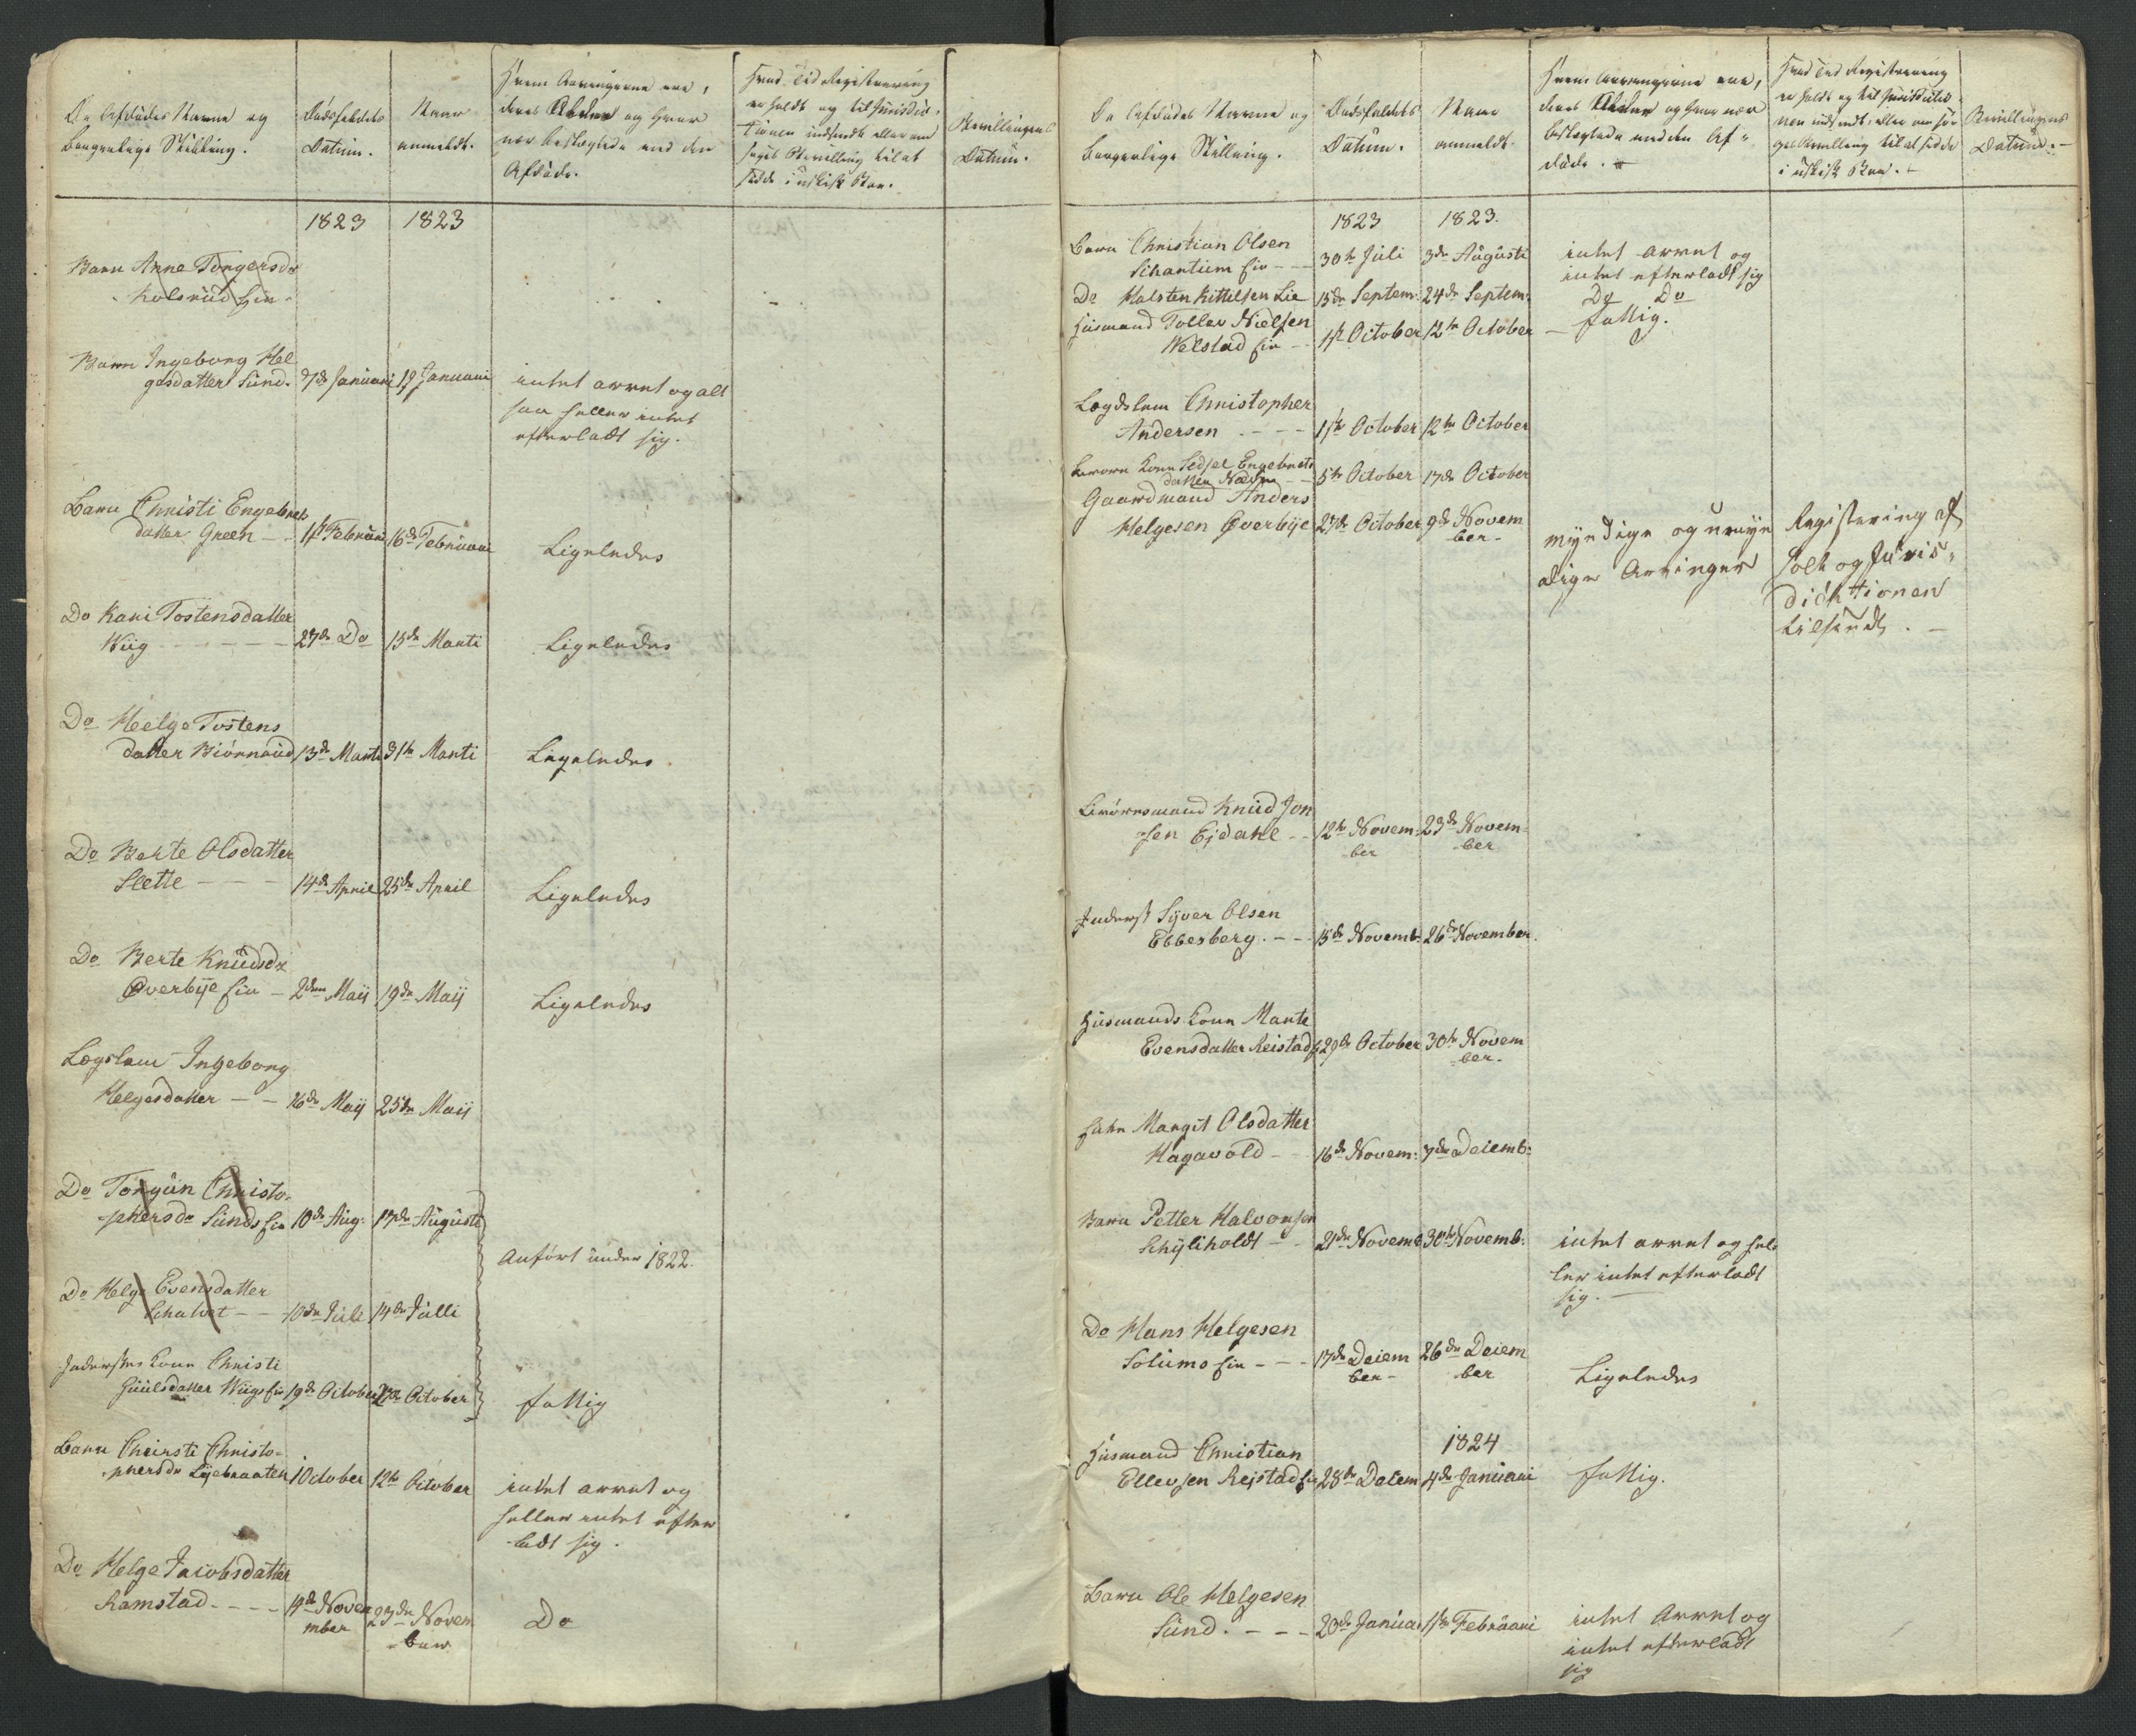 De Afdødes Navne og
borgerlige Stilling.
Dødsfaldets
Datum.
Naar
anmeldt.
Hvem Arvingerne ere,
deres Alder og hvor
nær beslægtede med den
Afdøde.
Hvad Tid Registrering
er holdt og til Jurisdic¬
tionen indsendt eller om
søges Bevilling til at
sidde i uskift Boe.
Bevillingens
Datum.
1823 1823
Barn Anne Torgersdr
Kolsrud Eie
Barn Ingeborg Hel
gesdatter Sund. 7de Januari 19 Januari
intet arvet og alt
saa heller intet
efterladt sig.
Barn Christi Engebrets
datter Green - - 1st Februari 16de Februari Ligeledes
Do Kari Tostensdatter
Wiig - - - - - 27de Do 15de Marti Ligeledes
Do Helge Tostens
datter Biørnerud 13de Marti 31te Marti Ligeledes
Do Berte Olsdatter
Slette - - - 14de April 25de April Ligeledes
Do Berte Knudsdr
Overbÿe Eie - 2den Maij 19de Maij Ligeledes
Lægslem Ingeborg
Helgesdatter - - 16de Maij 25de Maij
Do Torgun Christo-
phersdr Sunds Eie 10de Aug: 17de Augusti
Anført under 1822.
Do Helge Evensdatter
- - 10de Juli 14de Julli
Inderstes Kone Christi
Guulsdatter Wiigs Eie 19de October 27de October fattig
Barn Chiersti Christo-
phersdr Lÿebraaten 1 October 12te October intet arvet og
heller intet efter
ladt sig.
Do Helge Jacobsdatter
Ramstad - - - - 14de Nove
mber 23de Novem
ber Do
De Afdødes Navne og
borgerlige Stilling.
Dødsfaldets
Datum.
Naar
anmeldt.
Hvem Arvingerne ere,
deres Alder og hvor nær
beslægtede med den Af¬
døde.
Hvad Tid Registrering
er holdt og til Jurisdictio¬
nen indsendt eller om sø¬
ges Bevilling til at sidde
i uskift Boe.
Bevillingens
Datum.
1823 1823.
Barn Christian Olsen
Eie - - 30te Juli 3de Augusti intet arvet og
intet efterladt sig
Do Halsten Kittilsen Lie 15de Septem: 24de Septem: Do Do
Huusmand Tollev Nielsen
Welstad Eie - - 1st October 12te October - fattig.
Lægdslem Christopher
Andersen - - - - 1ste October 12te October
Kone Sidsel Engebrets
datter - - 5te October 17de October
Gaardmand Anders
Helgesen Overbÿe 27de October 9de Novem
ber - myndige og umyn
dige Arvinger Registering af
holt og Juris¬
dichtionen
tilsendt. -
Knud Jon
sen Ejdahl - - 12te Novem-
ber 23de Novem-
ber
Inderst Syver Olsen
Ebbesberg. - - - 15de Novemb: 26de November.
Huusmands Kone Marte
Evensdatter Reistad 29de October 30te Novem
ber -
Margit Olsdatter
Hagavold - - 16de Novem: 7de Decemb:
Barn Petter Halvorsen
Schÿliholdt - - 21de Novemb: 30te Novemb: intet arvet og hel¬
ler intet efterladt
sig. -
Do Hans Helgesen
Solumo Eie - - - 17de Decem
ber - 26de Decem
ber Ligeledes
1824
Huusmand Christian
Ellevsen Rejstad Eie 28de Decem 4de Januari fattig.
Barn Ole Helgesen
Sund. - - - 20de Januar 1ste Februari intet Arvet og
intet efterladt
sig